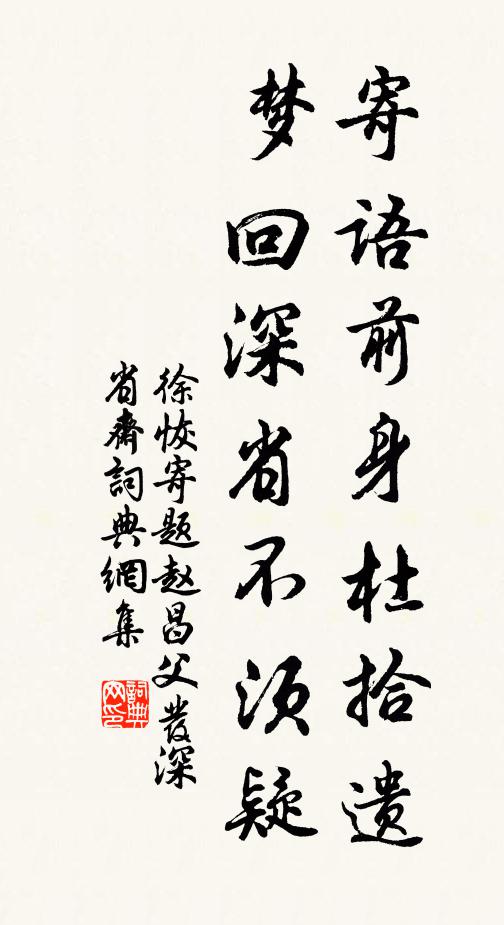 寄語前身杜拾遺
梦回深省不须疑
徐恢寄题赵昌父發深
省齋詞典網集
詞典网印